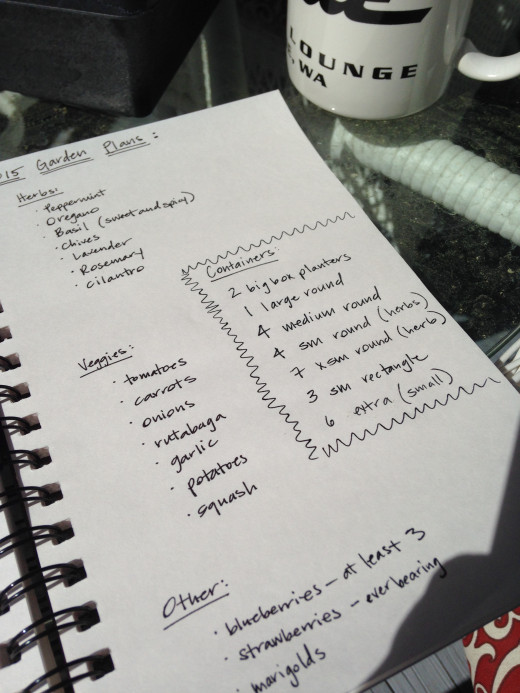 LOUNGE
, WA
15 Garden Plans:
Herbs:
· Peppermint
· Oregano
· Basil (sweet and spicy)
· chives
· Lavender
· Rosemary
· cilantro
Containers:
2 big box planters
1 large round
4 medium round
4 sm round (herbs)
7 xsm round (herb)
3 sm rectangle
6 extra (small)
Veggies:
· tomatoes
· carrots
· onions
· rutabaga
· garlic
· potatoes
· squash
Other:
· blueberries – at least 3
· strawberries – everbearing
· marigolds